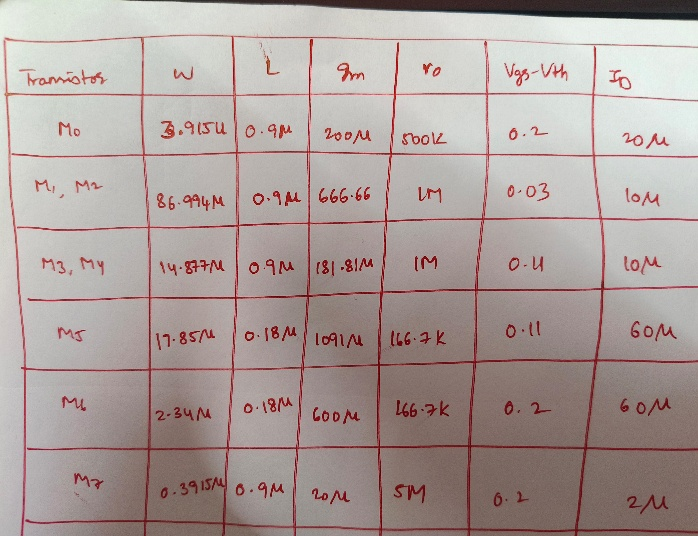 Transistor W L gm ro Vgs-Vth ID
M0 3.915u 0.9μ 200μ 500K 0.2 20μ
M1, M2 86.994μ 0.9μ 666.66 1M 0.03 10μ
M3, M4 14.877μ 0.9μ 181.81μ 1M 0.11 10μ
M5 17.85μ 0.18μ 1091μ 166.7K 0.11 60μ
M6 2.34μ 0.18μ 600μ 166.7K 0.2 60μ
M7 0.3915μ 0.9μ 20μ 5M 0.2 2μ